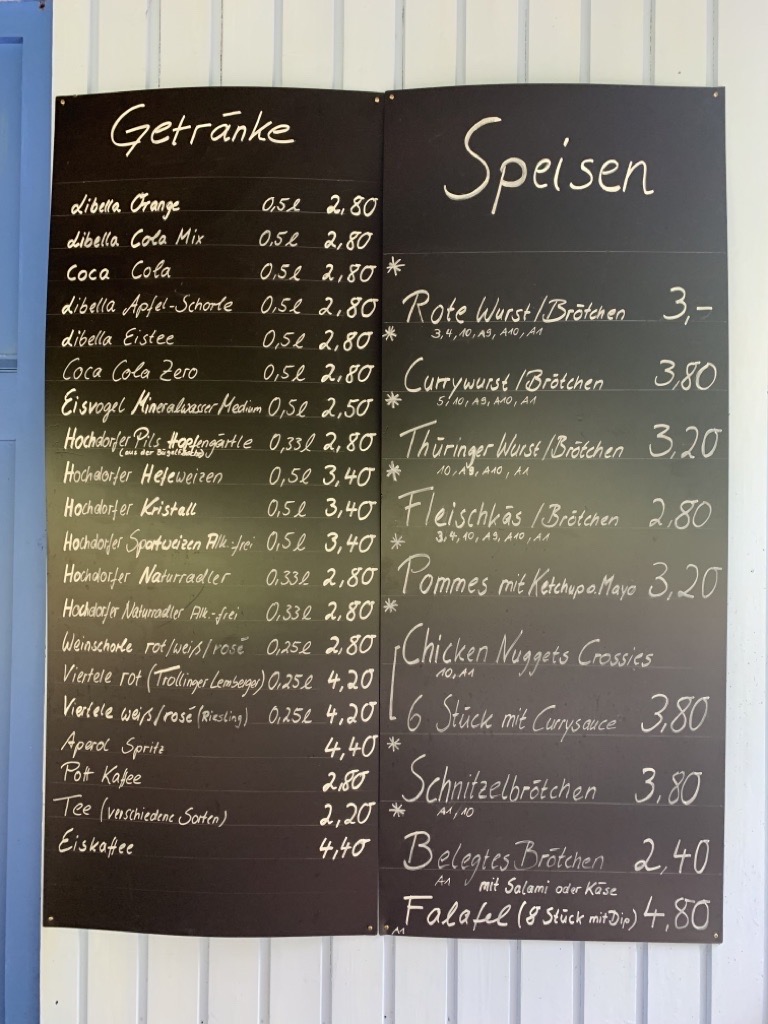 Getränke
Libella Orange 0,5l 2,80
Libella Cola Mix 0,5l 2,80
Coca Cola 0,5l 2,80
Libella Apfel-Schorle 0,5l 2,80
Libella Eistee 0,5l 2,80
Coca Cola Zero 0,5l 2,80
Eisvogel Mineralwasser Medium 0,5l 2,50
Hochdorfer Pils Hopfengärtle 0,33l 2,80
(aus der Bügelflasche)
Hochdorfer Hefeweizen 0,5l 3,40
Hochdorfer Kristall 0,5l 3,40
Hochdorfer Sportweizen Alk.-frei 0,5l 3,40
Hochdorfer Naturradler 0,33l 2,80
Hochdorfer Naturradler Alk.-frei 0,33l 2,80
Weinschorle rot/weiß/rosé 0,25l 2,80
Viertele rot (Trollinger Lemberger) 0,25l 4,20
Viertele weiß/rosé (Riesling) 0,25l 4,20
Aperol Spritz 4,40
Pott Kaffee 2,80
Tee (verschiedene Sorten) 2,20
Eiskaffee 4,40
Speisen
*
Rote Wurst/Brötchen 3,-
* 3,4,10,A9,A10,A1
Currywurst/Brötchen 3,80
* 5,10,A9,A10,A1
Thüringer Wurst/Brötchen 3,20
* 10,A9,A10,A1
Fleischkäs/Brötchen 2,80
* 3,4,10,A9,A10,A1
Pommes mit Ketchup o. Mayo 3,20
*
Chicken Nuggets Crossies
10,A1
6 Stück mit Currysauce 3,80
*
Schnitzelbrötchen 3,80
* A1,10
Belegtes Brötchen 2,40
A1 mit Salami oder Käse
Falafel (8 Stück mit Dip) 4,80
A1